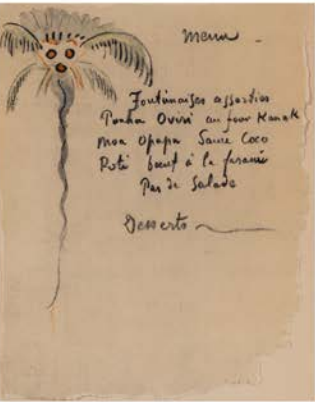 menu -
Fontanaises assorties
Punaa Oviri au four Kanak
moa Opapa Sauce Coco
Roti boeuf à la
Pas de Salade
Desserts